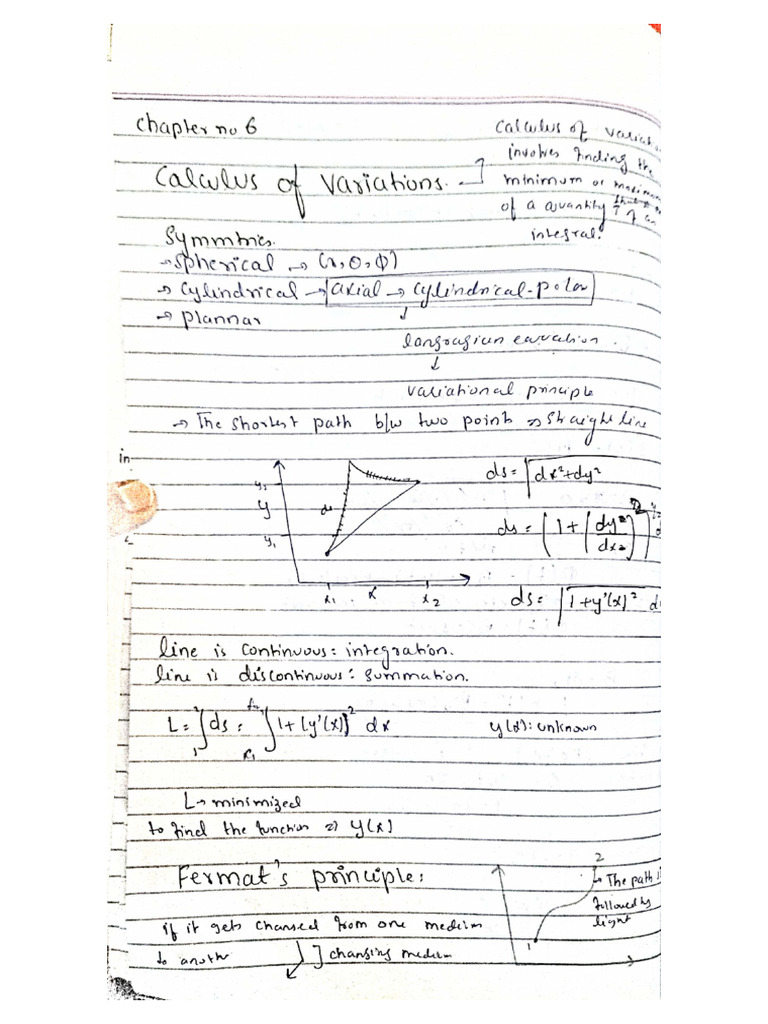 Chapter no 6
Calculus of
involves finding the
minimum or
of a quantity
integral.
Calculus of Variations.
Symmtries.
→ Spherical → (r, θ, φ)
→ Cylindrical → axial → Cylindrical-Polar
→ Plannar
↓
langragian equation
↓
variational principle
→ The shortest path b/w two point ⇒ straight line
in
y₂
y
y₁
ds
x₁ x x₂
ds = √dx²+dy²
ds = (1 + (dy²/dx²))
ds = √1+y'(x)²
line is continuous: integration.
line is discontinuous: summation.
L = ₁∫² ds = x₁∫ 1+(y'(x))² dx
y(x): unknown
L → minimized
to find the function ⇒ y(x)
Fermat's principle:
2
→ The path
followed by
light
1
if it gets changed from one medium
to another
] changing medium